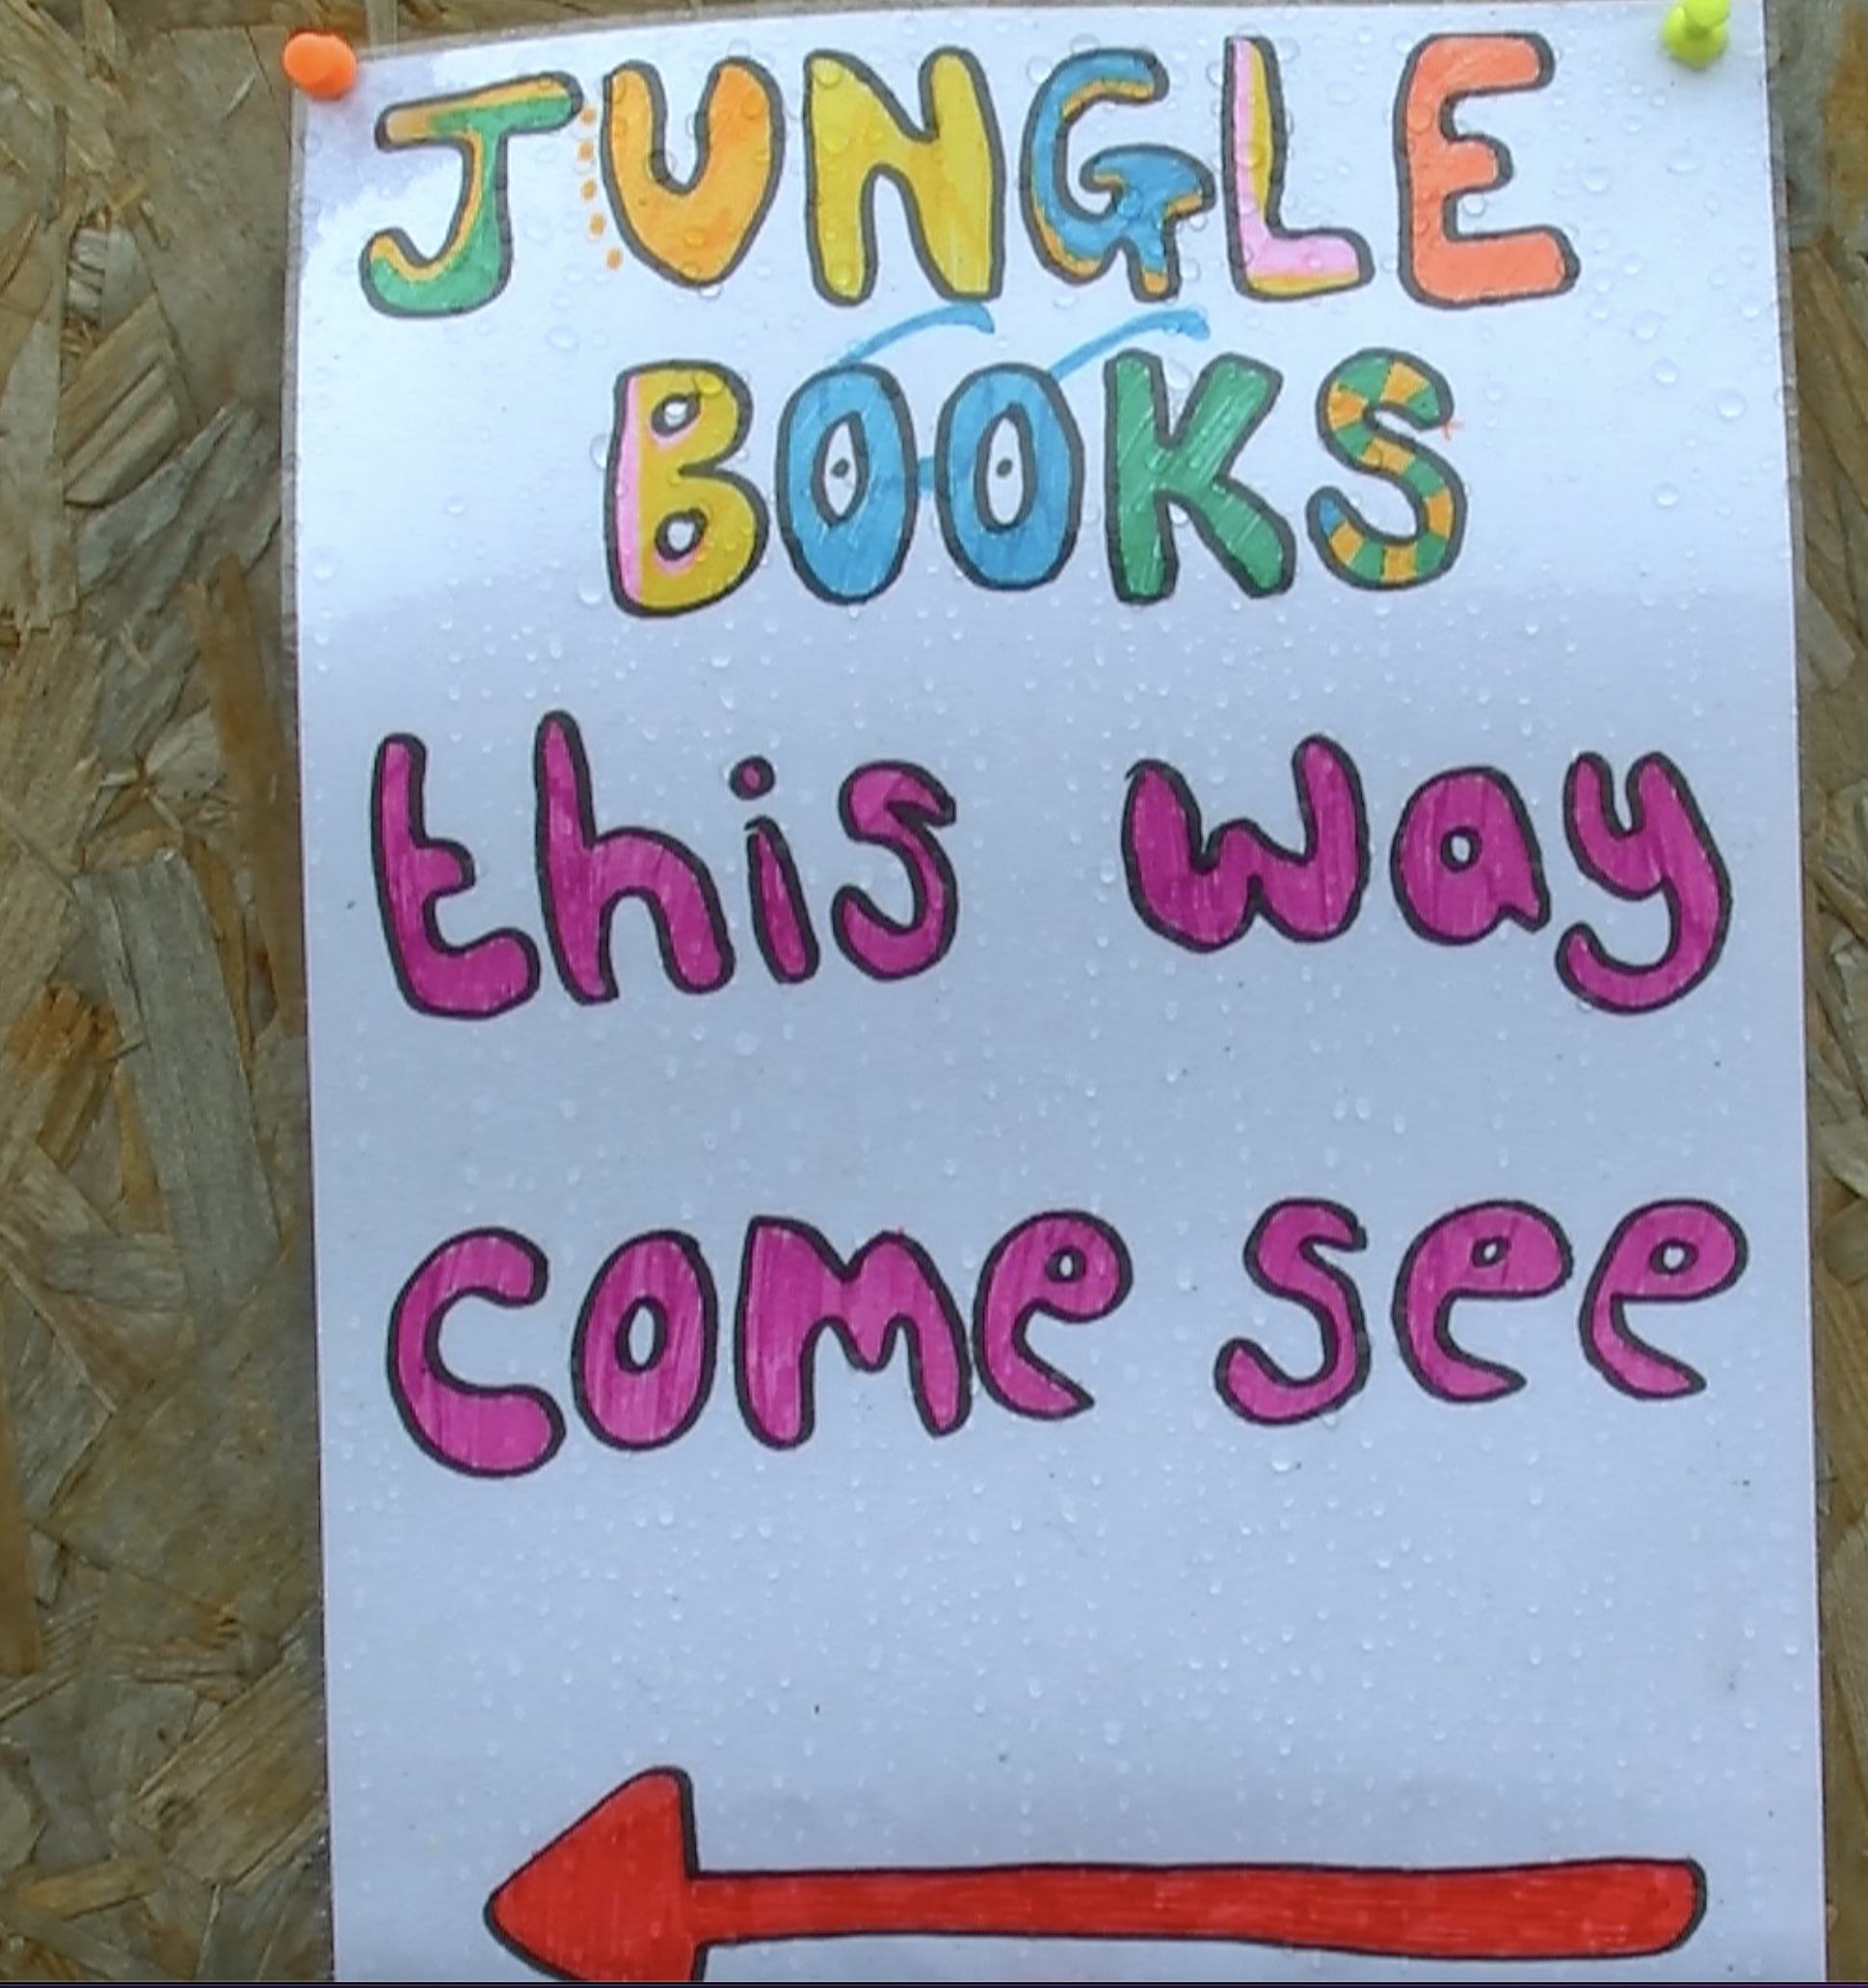 JUNGLE
BOOKS
this way
come see